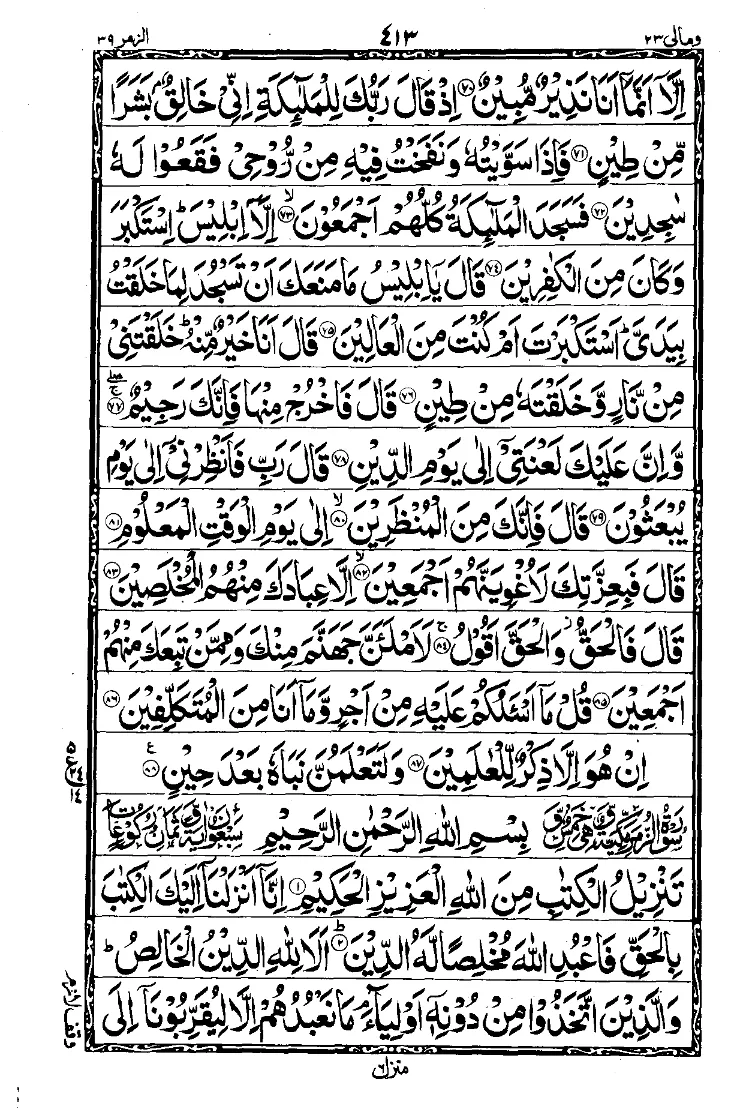 ومالی ٢٣ ٤١٣ الزمر ٣٩
اِلَّاۤ اَنَّمَاۤ اَنَا نَذِيْرٌ مُّبِيْنٌ ﴿٧٠﴾ اِذْ قَالَ رَبُّكَ لِلْمَلٰٓئِكَةِ اِنِّيْ خَالِقٌۢ بَشَرًا
مِّنْ طِيْنٍ ﴿٧١﴾ فَاِذَا سَوَّيْتُهٗ وَنَفَخْتُ فِيْهِ مِنْ رُّوْحِيْ فَقَعُوْا لَهٗ
سٰجِدِيْنَ ﴿٧٢﴾ فَسَجَدَ الْمَلٰٓئِكَةُ كُلُّهُمْ اَجْمَعُوْنَ ﴿٧٣﴾ۙ اِلَّاۤ اِبْلِيْسَ ؕ اِسْتَكْبَرَ
وَكَانَ مِنَ الْكٰفِرِيْنَ ﴿٧٤﴾ قَالَ يٰۤاِبْلِيْسُ مَا مَنَعَكَ اَنْ تَسْجُدَ لِمَا خَلَقْتُ
بِيَدَيَّ ؕ اَسْتَكْبَرْتَ اَمْ كُنْتَ مِنَ الْعَالِيْنَ ﴿٧٥﴾ قَالَ اَنَا خَيْرٌ مِّنْهُ ؕ خَلَقْتَنِيْ
مِنْ نَّارٍ وَّخَلَقْتَهٗ مِنْ طِيْنٍ ﴿٧٦﴾ قَالَ فَاخْرُجْ مِنْهَا فَاِنَّكَ رَجِيْمٌ ﴿٧٧﴾
وَّاِنَّ عَلَيْكَ لَعْنَتِيْۤ اِلٰى يَوْمِ الدِّيْنِ ﴿٧٨﴾ قَالَ رَبِّ فَاَنْظِرْنِيْۤ اِلٰى يَوْمِ
يُبْعَثُوْنَ ﴿٧٩﴾ قَالَ فَاِنَّكَ مِنَ الْمُنْظَرِيْنَ ﴿٨٠﴾ۙ اِلٰى يَوْمِ الْوَقْتِ الْمَعْلُوْمِ ﴿٨١﴾
قَالَ فَبِعِزَّتِكَ لَاُغْوِيَنَّهُمْ اَجْمَعِيْنَ ﴿٨٢﴾ۙ اِلَّا عِبَادَكَ مِنْهُمُ الْمُخْلَصِيْنَ ﴿٨٣﴾
قَالَ فَالْحَقُّ ؗ وَالْحَقَّ اَقُوْلُ ﴿٨٤﴾ۚ لَاَمْلَئَنَّ جَهَنَّمَ مِنْكَ وَمِمَّنْ تَبِعَكَ مِنْهُمْ
اَجْمَعِيْنَ ﴿٨٥﴾ قُلْ مَاۤ اَسْئَلُكُمْ عَلَيْهِ مِنْ اَجْرٍ وَّمَاۤ اَنَا مِنَ الْمُتَكَلِّفِيْنَ ﴿٨٦﴾
اِنْ هُوَ اِلَّا ذِكْرٌ لِّلْعٰلَمِيْنَ ﴿٨٧﴾ وَلَتَعْلَمُنَّ نَبَاَهٗ بَعْدَ حِيْنٍ ﴿٨٨﴾
بِسْمِ اللّٰهِ الرَّحْمٰنِ الرَّحِيْمِ
تَنْزِيْلُ الْكِتٰبِ مِنَ اللّٰهِ الْعَزِيْزِ الْحَكِيْمِ ﴿١﴾ اِنَّاۤ اَنْزَلْنَاۤ اِلَيْكَ الْكِتٰبَ
بِالْحَقِّ فَاعْبُدِ اللّٰهَ مُخْلِصًا لَّهُ الدِّيْنَ ﴿٢﴾ؕ اَلَا لِلّٰهِ الدِّيْنُ الْخَالِصُ ؕ
وَالَّذِيْنَ اتَّخَذُوْا مِنْ دُوْنِهٖۤ اَوْلِيَآءَ ۘ مَا نَعْبُدُهُمْ اِلَّا لِيُقَرِّبُوْنَاۤ اِلَى
وقف لازم
منزل ٦